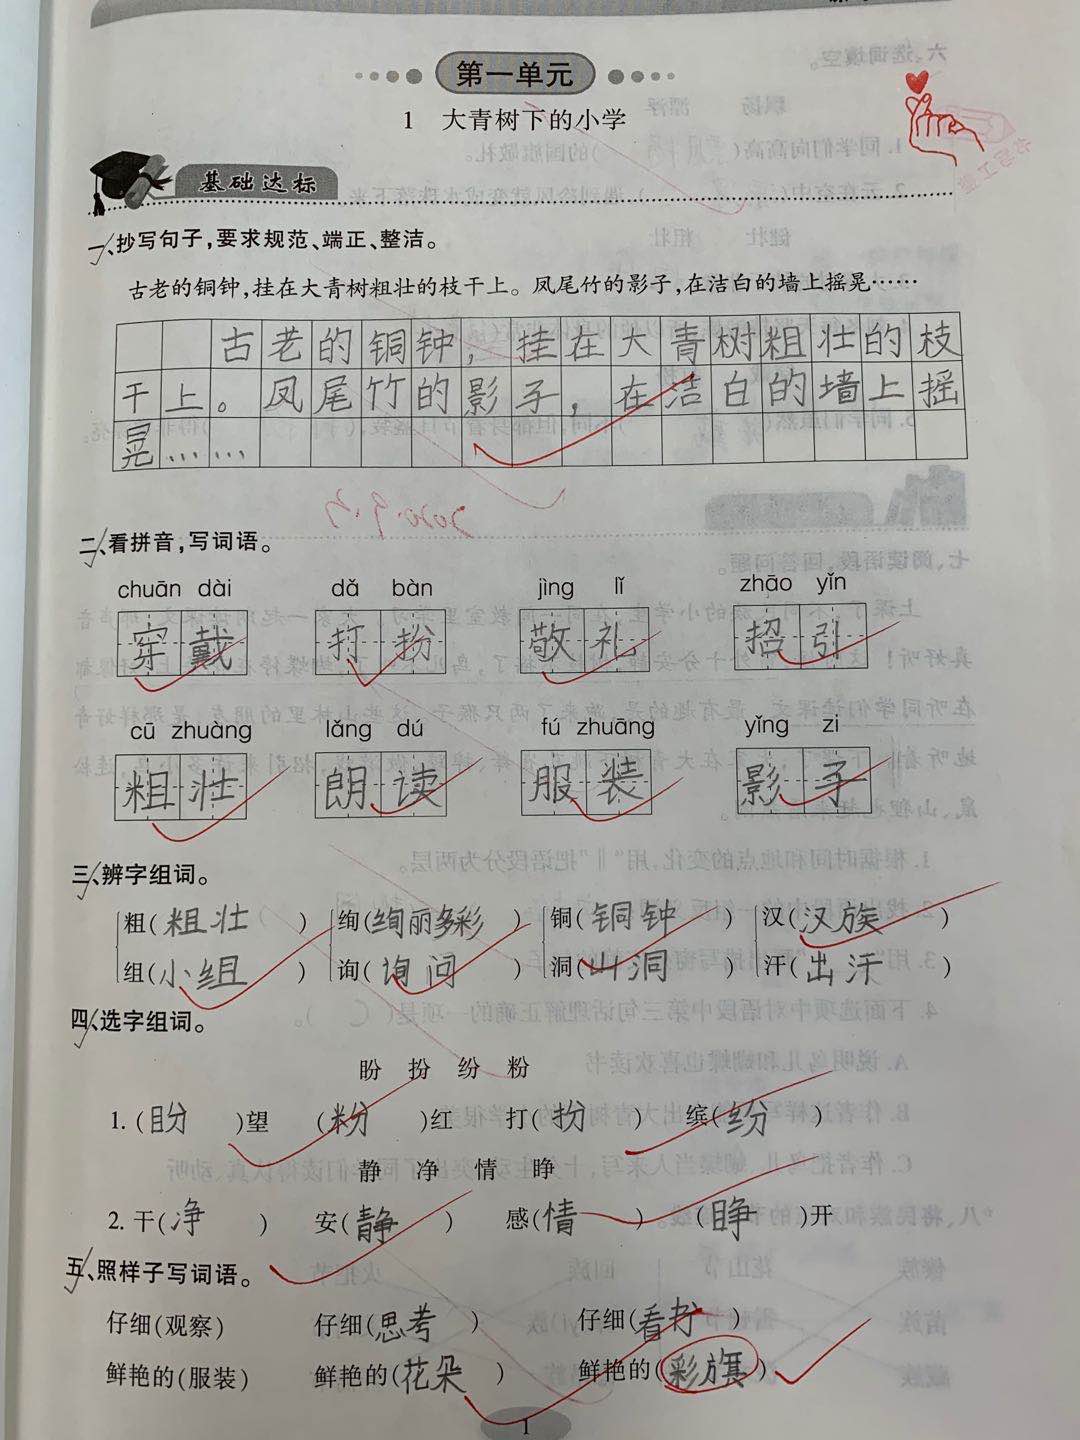 第一单元
1 大青树下的小学
基础达标
一、抄写句子,要求规范、端正、整洁。
古老的铜钟,挂在大青树粗壮的枝干上。凤尾竹的影子,在洁白的墙上摇晃……
古老的铜钟，挂在大青树粗壮的枝
干上。凤尾竹的影子，在洁白的墙上摇
晃……
二、看拼音,写词语。
chuān dài dǎ bàn jìng lǐ zhāo yǐn
穿戴 打扮 敬礼 招引
cū zhuàng lǎng dú fú zhuāng yǐng zi
粗壮 朗读 服装 影子
三、辨字组词。
粗(粗壮) 绚(绚丽多彩) 铜(铜钟) 汉(汉族)
组(小组) 询(询问) 洞(山洞) 汗(出汗)
四、选字组词。
盼 扮 纷 粉
1. (盼)望 (粉)红 打(扮) 缤(纷)
静 净 情 睁
2. 干(净) 安(静) 感(情) (睁)开
五、照样子写词语。
仔细(观察) 仔细(思考) 仔细(看)
鲜艳的(服装) 鲜艳的(花朵) 鲜艳的(彩旗)
1